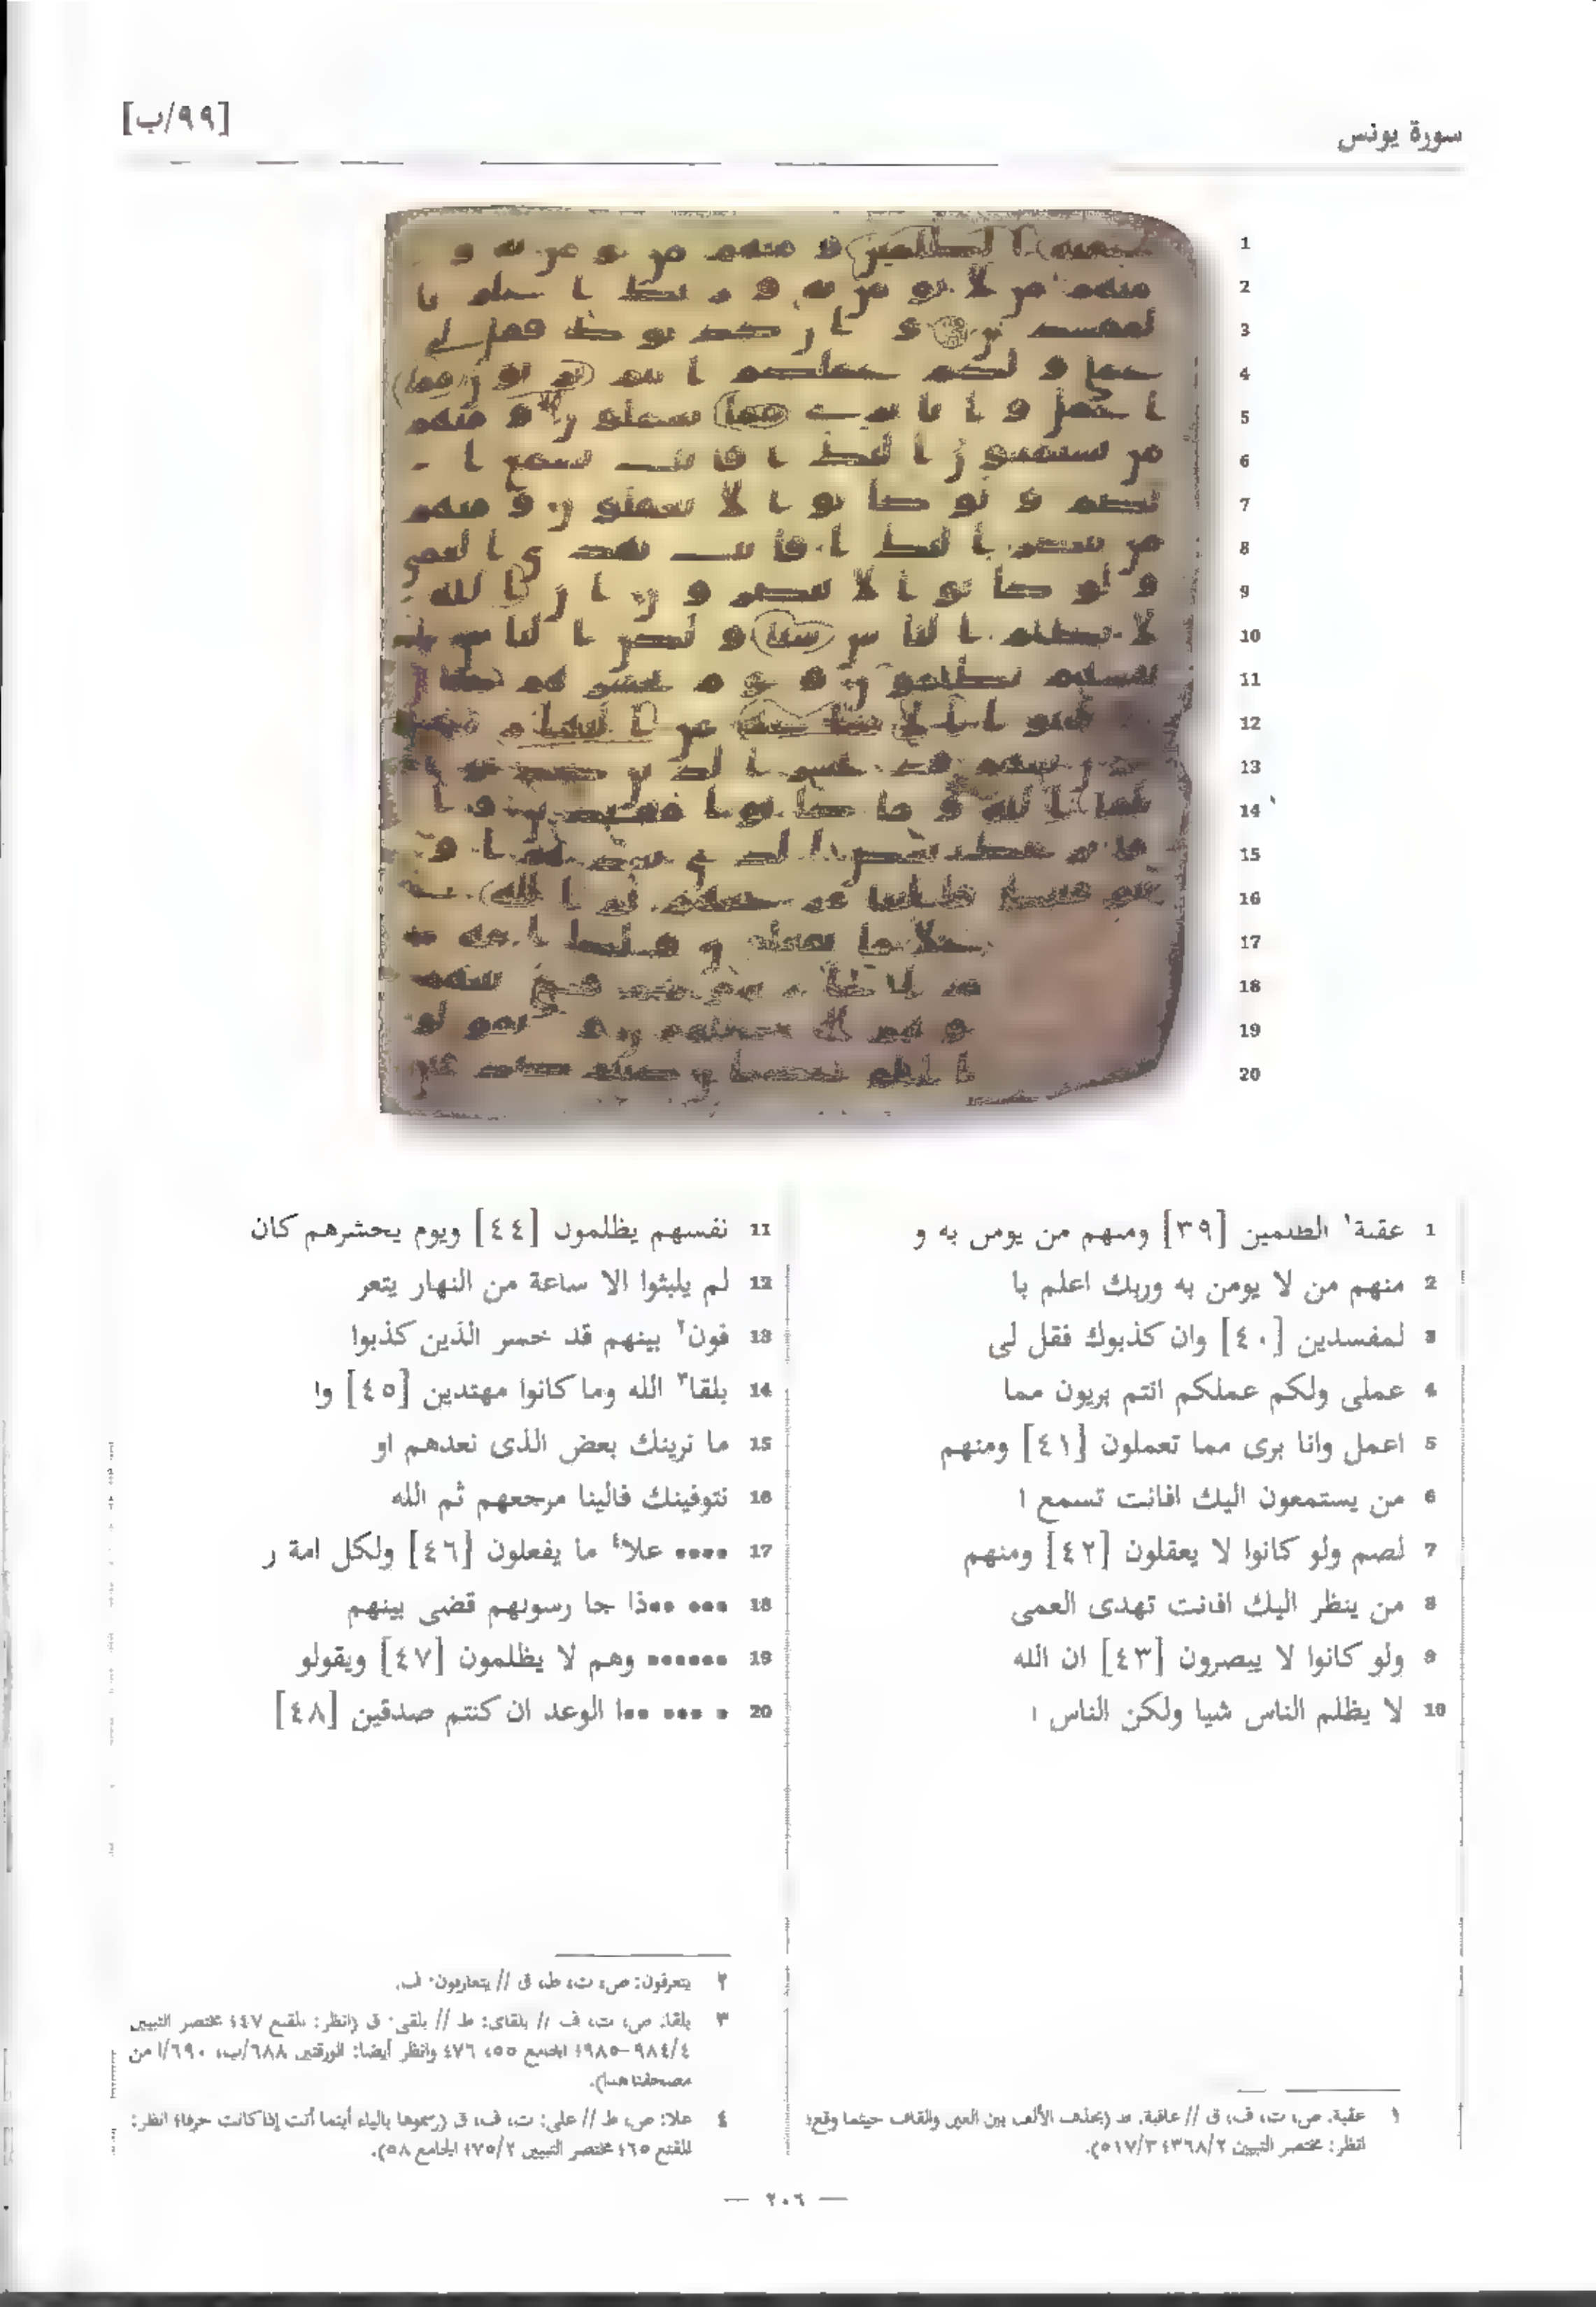 سورة يونس
[٩٩/ب]
1 عقبة١ الظلمين [٣٩] ومنهم من يومن به و
2 منهم من لا يومن به وربك اعلم با
3 لمفسدين [٤٠] وان كذبوك فقل لى
4 عملى ولكم عملكم انتم بريون مما
5 اعمل وانا برى مما تعملون [٤١] ومنهم
6 من يستمعون اليك افانت تسمع ا
7 لصم ولو كانوا لا يعقلون [٤٢] ومنهم
8 من ينظر اليك افانت تهدى العمى
9 ولو كانوا لا يبصرون [٤٣] ان الله
10 لا يظلم الناس شيا ولكن الناس ا
11 نفسهم يظلمون [٤٤] ويوم يحشرهم كان
12 لم يلبثوا الا ساعة من النهار يتعر
13 فون٢ بينهم قد خسر الذين كذبوا
14 بلقا٣ الله وما كانوا مهتدين [٤٥] وا
15 ما نرينك بعض الذى نعدهم او
16 نتوفينك فالينا مرجعهم ثم الله
17 •••• علا٤ ما يفعلون [٤٦] ولكل امة ر
18 ••• ••ذا جا رسولهم قضى بينهم
19 •••••• وهم لا يظلمون [٤٧] ويقولو
20 • ••• ••ا الوعد ان كنتم صدقين [٤٨]
١ عقبة: ص، ت، ف، ق // عاقبة: ط (بحذف الألف بين العين والقاف حيثما وقع؛
انظر: مختصر التبيين ٣٦٨/٢؛ ٥١٧/٣).
٢ يتعرفون: ص، ت، ط، ق // يتعارفون: ف.
٣ بلقا: ص، ت، ف // بلقاى: ط // بلقى: ق (انظر: المقنع ٤٧؛ مختصر التبيين
٩٨٤/٤-٩٨٥؛ الجامع ٥٥، ٧٦؛ وانظر أيضا: الورقتين ٦٨٨/ب، ٦٩٠/أ من
مصحفنا هذا).
٤ علا: ص، ط // على: ت، ف، ق (رسموها بالياء أينما أتت إذا كانت حرفا؛ انظر:
المقنع ٦٥؛ مختصر التبيين ٧٥/٢؛ الجامع ٥٨).
— ٢٠٦ —